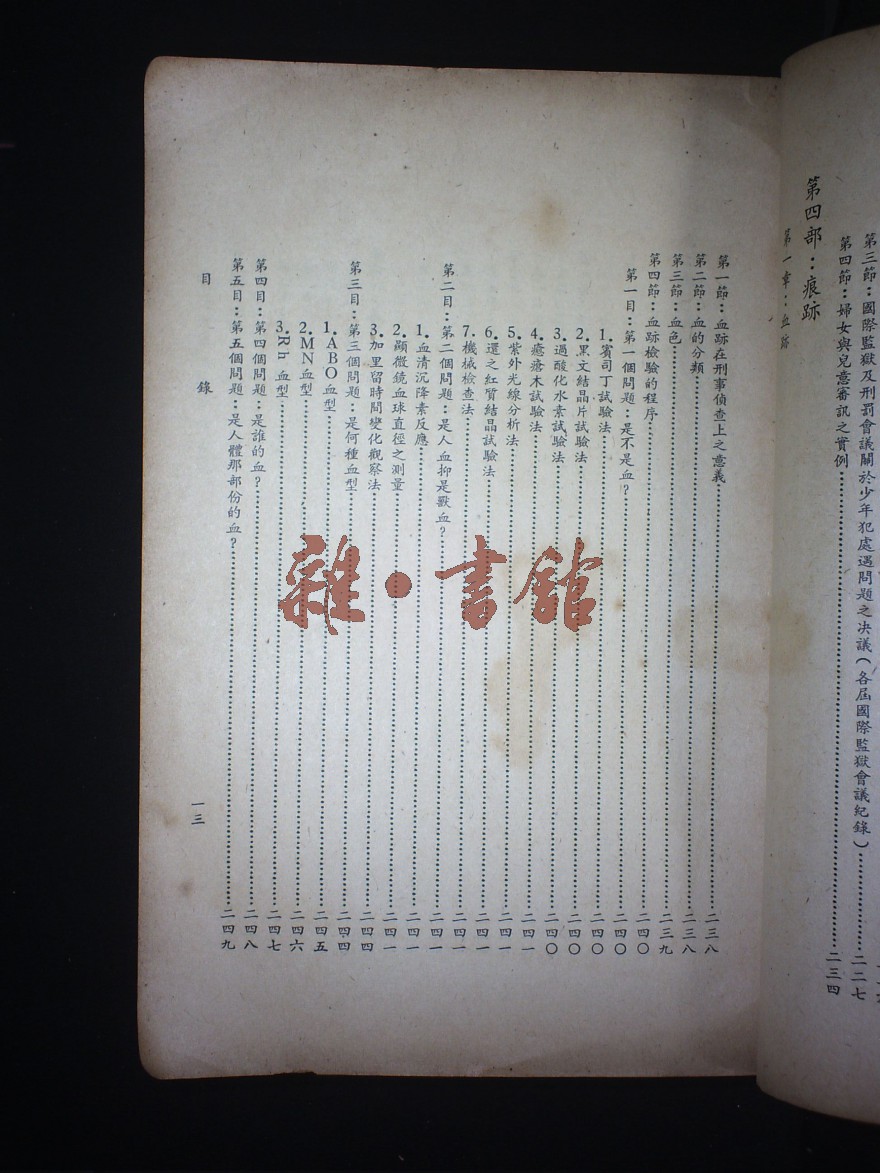 第三節：國際監獄及刑罰會議關於少年犯處遇問題之決議(各屆國際監獄會議紀錄)……二二七
第四節：婦女與兒意審訊之實例……二三四
第四部：痕跡
第一章：血跡
第一節：血跡在刑事偵查上之意義……二三八
第二節：血的分類……二三八
第三節：血色……二三九
第四節：血跡檢驗的程序……二四〇
第一目：第一個問題：是不是血？……二四〇
1.賓司丁試驗法……二四〇
2.黑文結晶片試驗法……二四〇
3.過酸化水素試驗法……二四〇
4.癒瘡木試驗法……二四一
5.紫外光線分析法……二四一
6.還之紅質結晶試驗法……二四一
7.機械檢查法……二四一
第二目：第二個問題：是人血抑是獸血？……二四一
1.血清沉降素反應……二四一
2.顯微鏡血球直徑之測量……二四一
3.加里留時間變化觀察法……二四四
第三目：第三個問題：是何種血型……二四四
1.ABO血型……二四五
2.MN血型……二四六
3.Rh 血型……二四七
第四目：第四個問題：是誰的血？……二四八
第五目：第五個問題：是人體那部份的血？……二四九
目 錄
一三
雜·書館